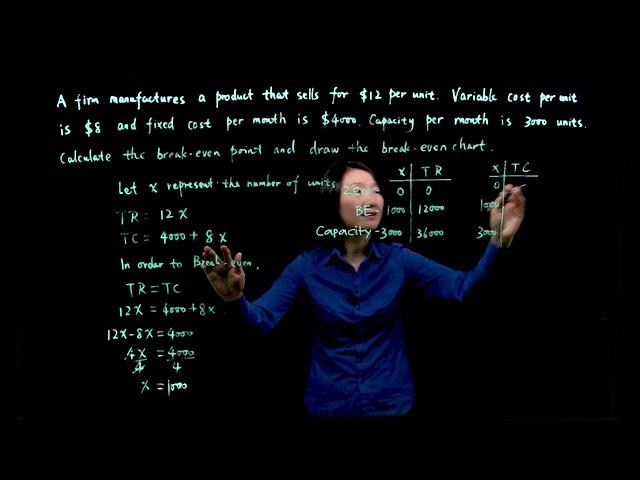 A firm manufactures a product that sells for $12 per unit. Variable cost per unit
is $8 and fixed cost per month is $4000. Capacity per month is 3000 units.
Calculate the break-even point and draw the break-even chart.
Let x represent the number of units
TR = 12X
TC = 4000 + 8X
In order to Break-even,
TR = TC
12X = 4000 + 8X.
12X - 8X = 4000
4X/4 = 4000/4
X = 1000
X TR
Zero 0 0
BE- 1000 12000
Capacity - 3000 36000
X TC
0
1000
3000